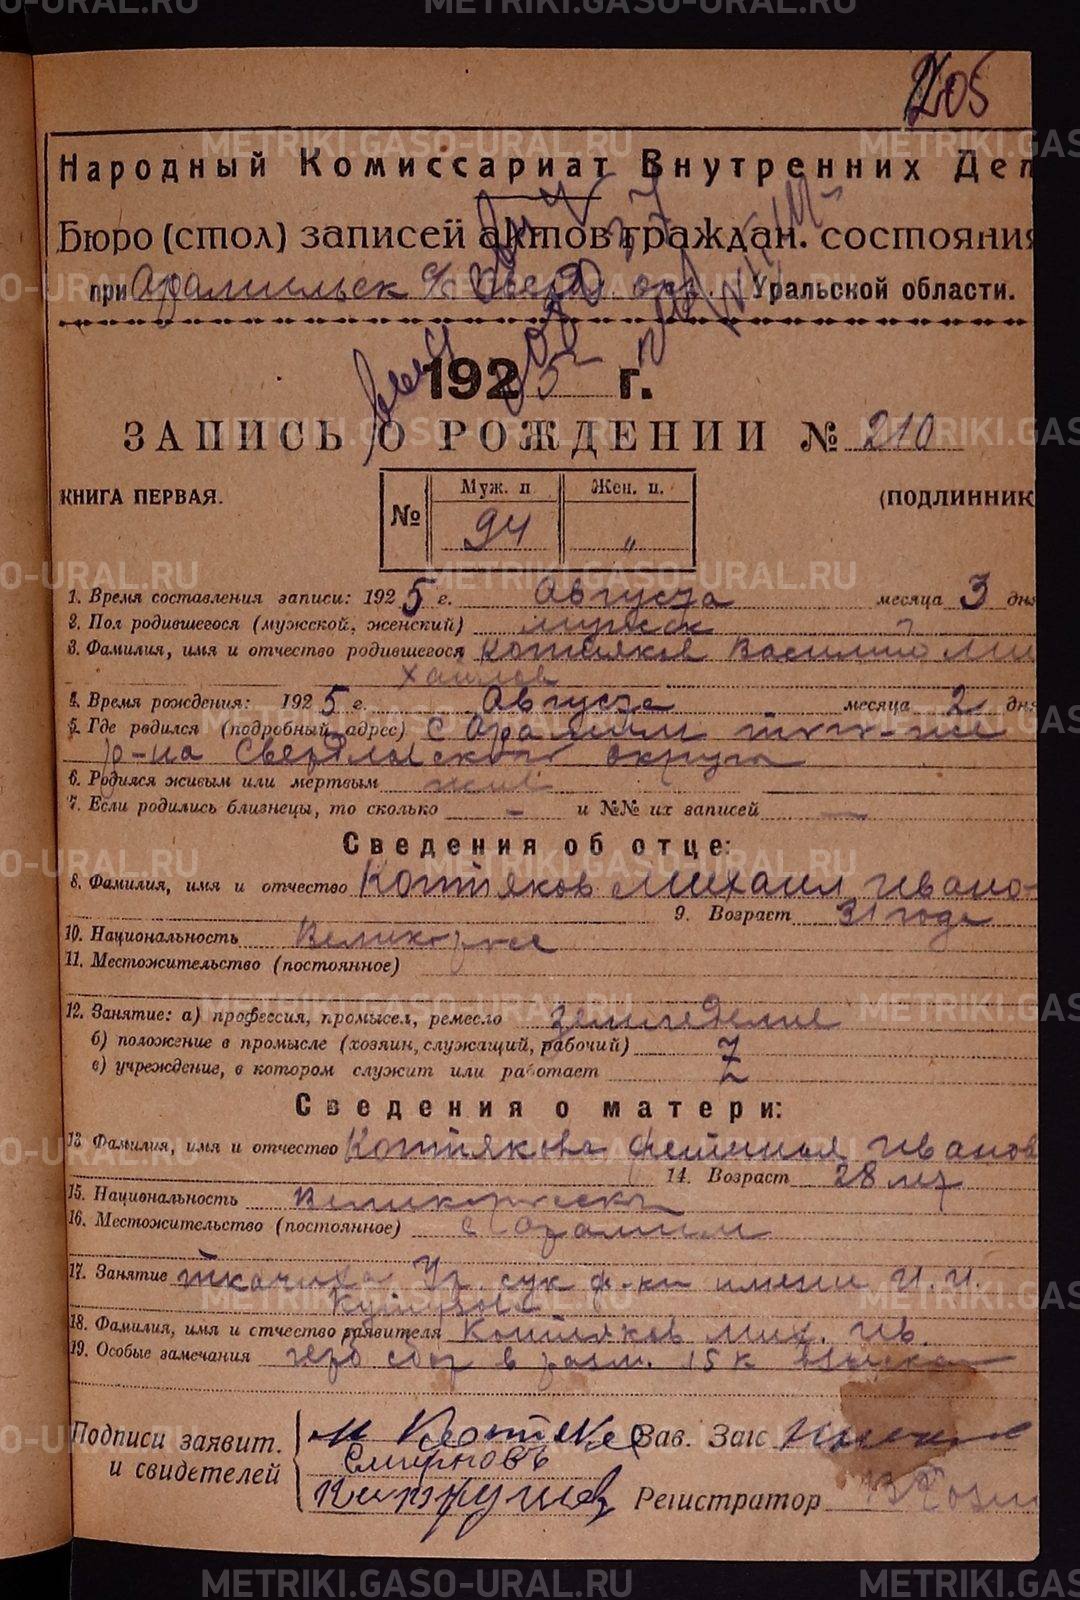 205
Народный Комиссариат Внутренних Дел
Бюро (стол) записей актов граждан. состояния
при Арамильск с/с Сверд. окр. Уральской области.
1925 г.
ЗАПИСЬ О РОЖДЕНИИ № 210
КНИГА ПЕРВАЯ.
(ПОДЛИННИК
№ Муж. п. Жен. п.
94 „
1. Время составления записи: 1925 г. Августа месяца 3 дня
2. Пол родившегося (мужской, женский) мужск
3. Фамилия, имя и отчество родившегося Котяков Василий Ми
хайлов
4. Время рождения: 1925 г. Августа месяца 2 дня
5. Где родился (подробный адрес) с Арамил
р-на Свердловского округа
6. Родился живым или мертвым жив
7. Если родились близнецы, то сколько - и №№ их записей —
Сведения об отце:
8. Фамилия, имя и отчество Котяков Михаил Ивано-
9. Возраст 31 года
10. Национальность Великорос
11. Местожительство (постоянное)
12. Занятие: а) профессия, промысел, ремесло земледелие
б) положение в промысле (хозяин, служащий, рабочий)
в) учреждение, в котором служит или работает
Сведения о матери:
13. Фамилия, имя и отчество Котякова Фетинья Иванов
14. Возраст 28 лет
15. Национальность Великоросска
16. Местожительство (постоянное) с Арамил
17. Занятие ткачиха Ур. сук ф-ки имени И. И.
18. Фамилия, имя и отчество заявителя Котяков Мих. Ив.
19. Особые замечания герб сбор в разм. 15 к взыскан
Подписи заявит.
и свидетелей
М Котяков
Смирновъ
Зав. Загс
Регистратор
METRIKI.GASO-URAL.RU